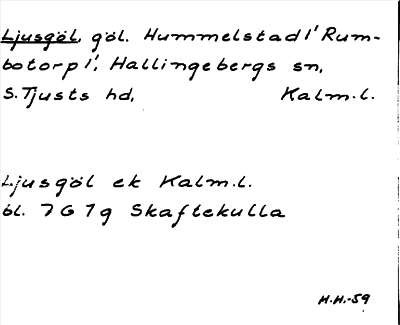 Ljusgöl, göl. Hummelstad 1' Rum-
botorp 1', Hallingebergs sn,
S. Tjusts hd, Kalm. l.
Ljusgöl ek Kalm. l.
bl. 7 G 7 g Skaftekulla
H.H.-59